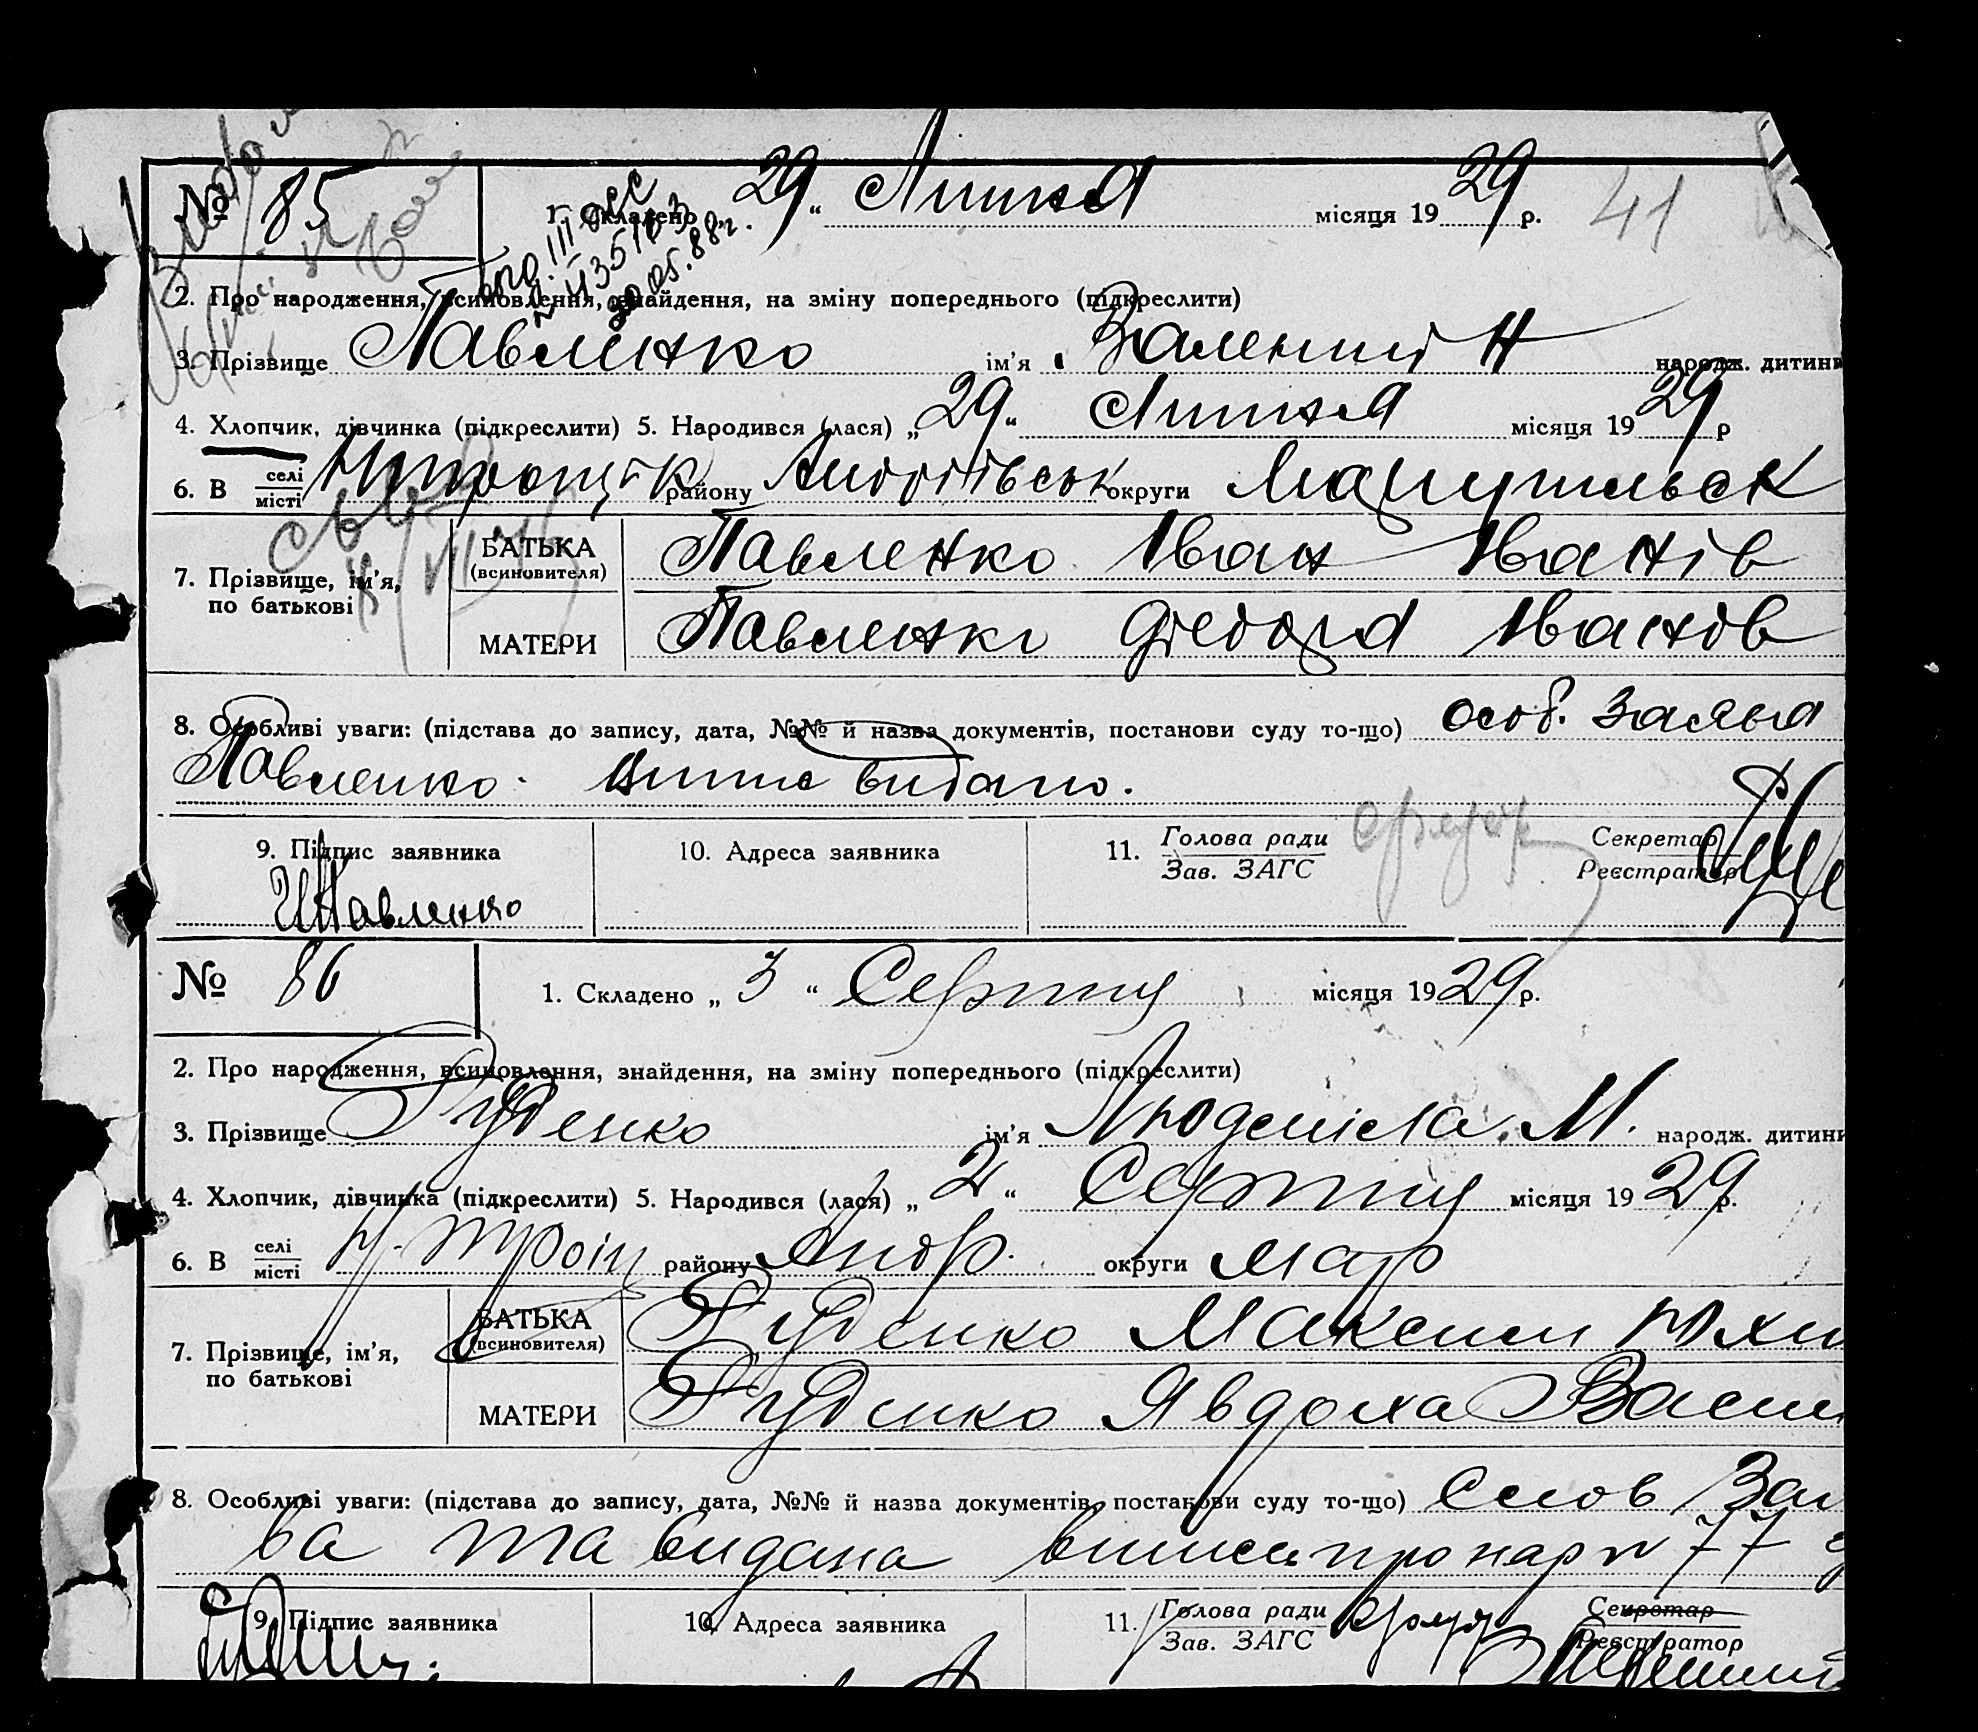 № 85
1. Складено „29“ Липня місяця 1929 р. 41
2. Про народження, всиновлення, знайдення, на зміну попереднього (підкреслити)
3. Прізвище Павленко ім'я Валентин народж. дитини
4. Хлопчик, дівчинка (підкреслити) 5. Народився (лася) „29“ Липня місяця 1929 р
6. В селі/місті району округи Маріупольськ
7. Прізвище, ім'я, по батькові
БАТЬКА (всиновителя) Павленко Іван Іванів
МАТЕРИ Павленко Іванів
8. Особливі уваги: (підстава до запису, дата, №№ й назва документів, постанови суду то-що) особ. заява
Павленко. видано.
9. Підпис заявника 10. Адреса заявника 11. Голова ради / Зав. ЗАГС Секретар / Реєстратор
Павленко
№ 86
1. Складено „3“ Серпня місяця 1929 р.
2. Про народження, всиновлення, знайдення, на зміну попереднього (підкреслити)
3. Прізвище Руденко ім'я Людмила. М. народж. дитини
4. Хлопчик, дівчинка (підкреслити) 5. Народився (лася) „2“ Серпня місяця 1929 р.
6. В селі/місті Н. Троіц району Андр. округи Мар
7. Прізвище, ім'я, по батькові
БАТЬКА (всиновителя) Руденко Максим Юхи
МАТЕРИ Руденко Явдоха Васил
8. Особливі уваги: (підстава до запису, дата, №№ й назва документів, постанови суду то-що) Слов Зая
ва та видана випись про нар № 77
9. Підпис заявника 10. Адреса заявника 11. Голова ради / Зав. ЗАГС Секретар / Реєстратор